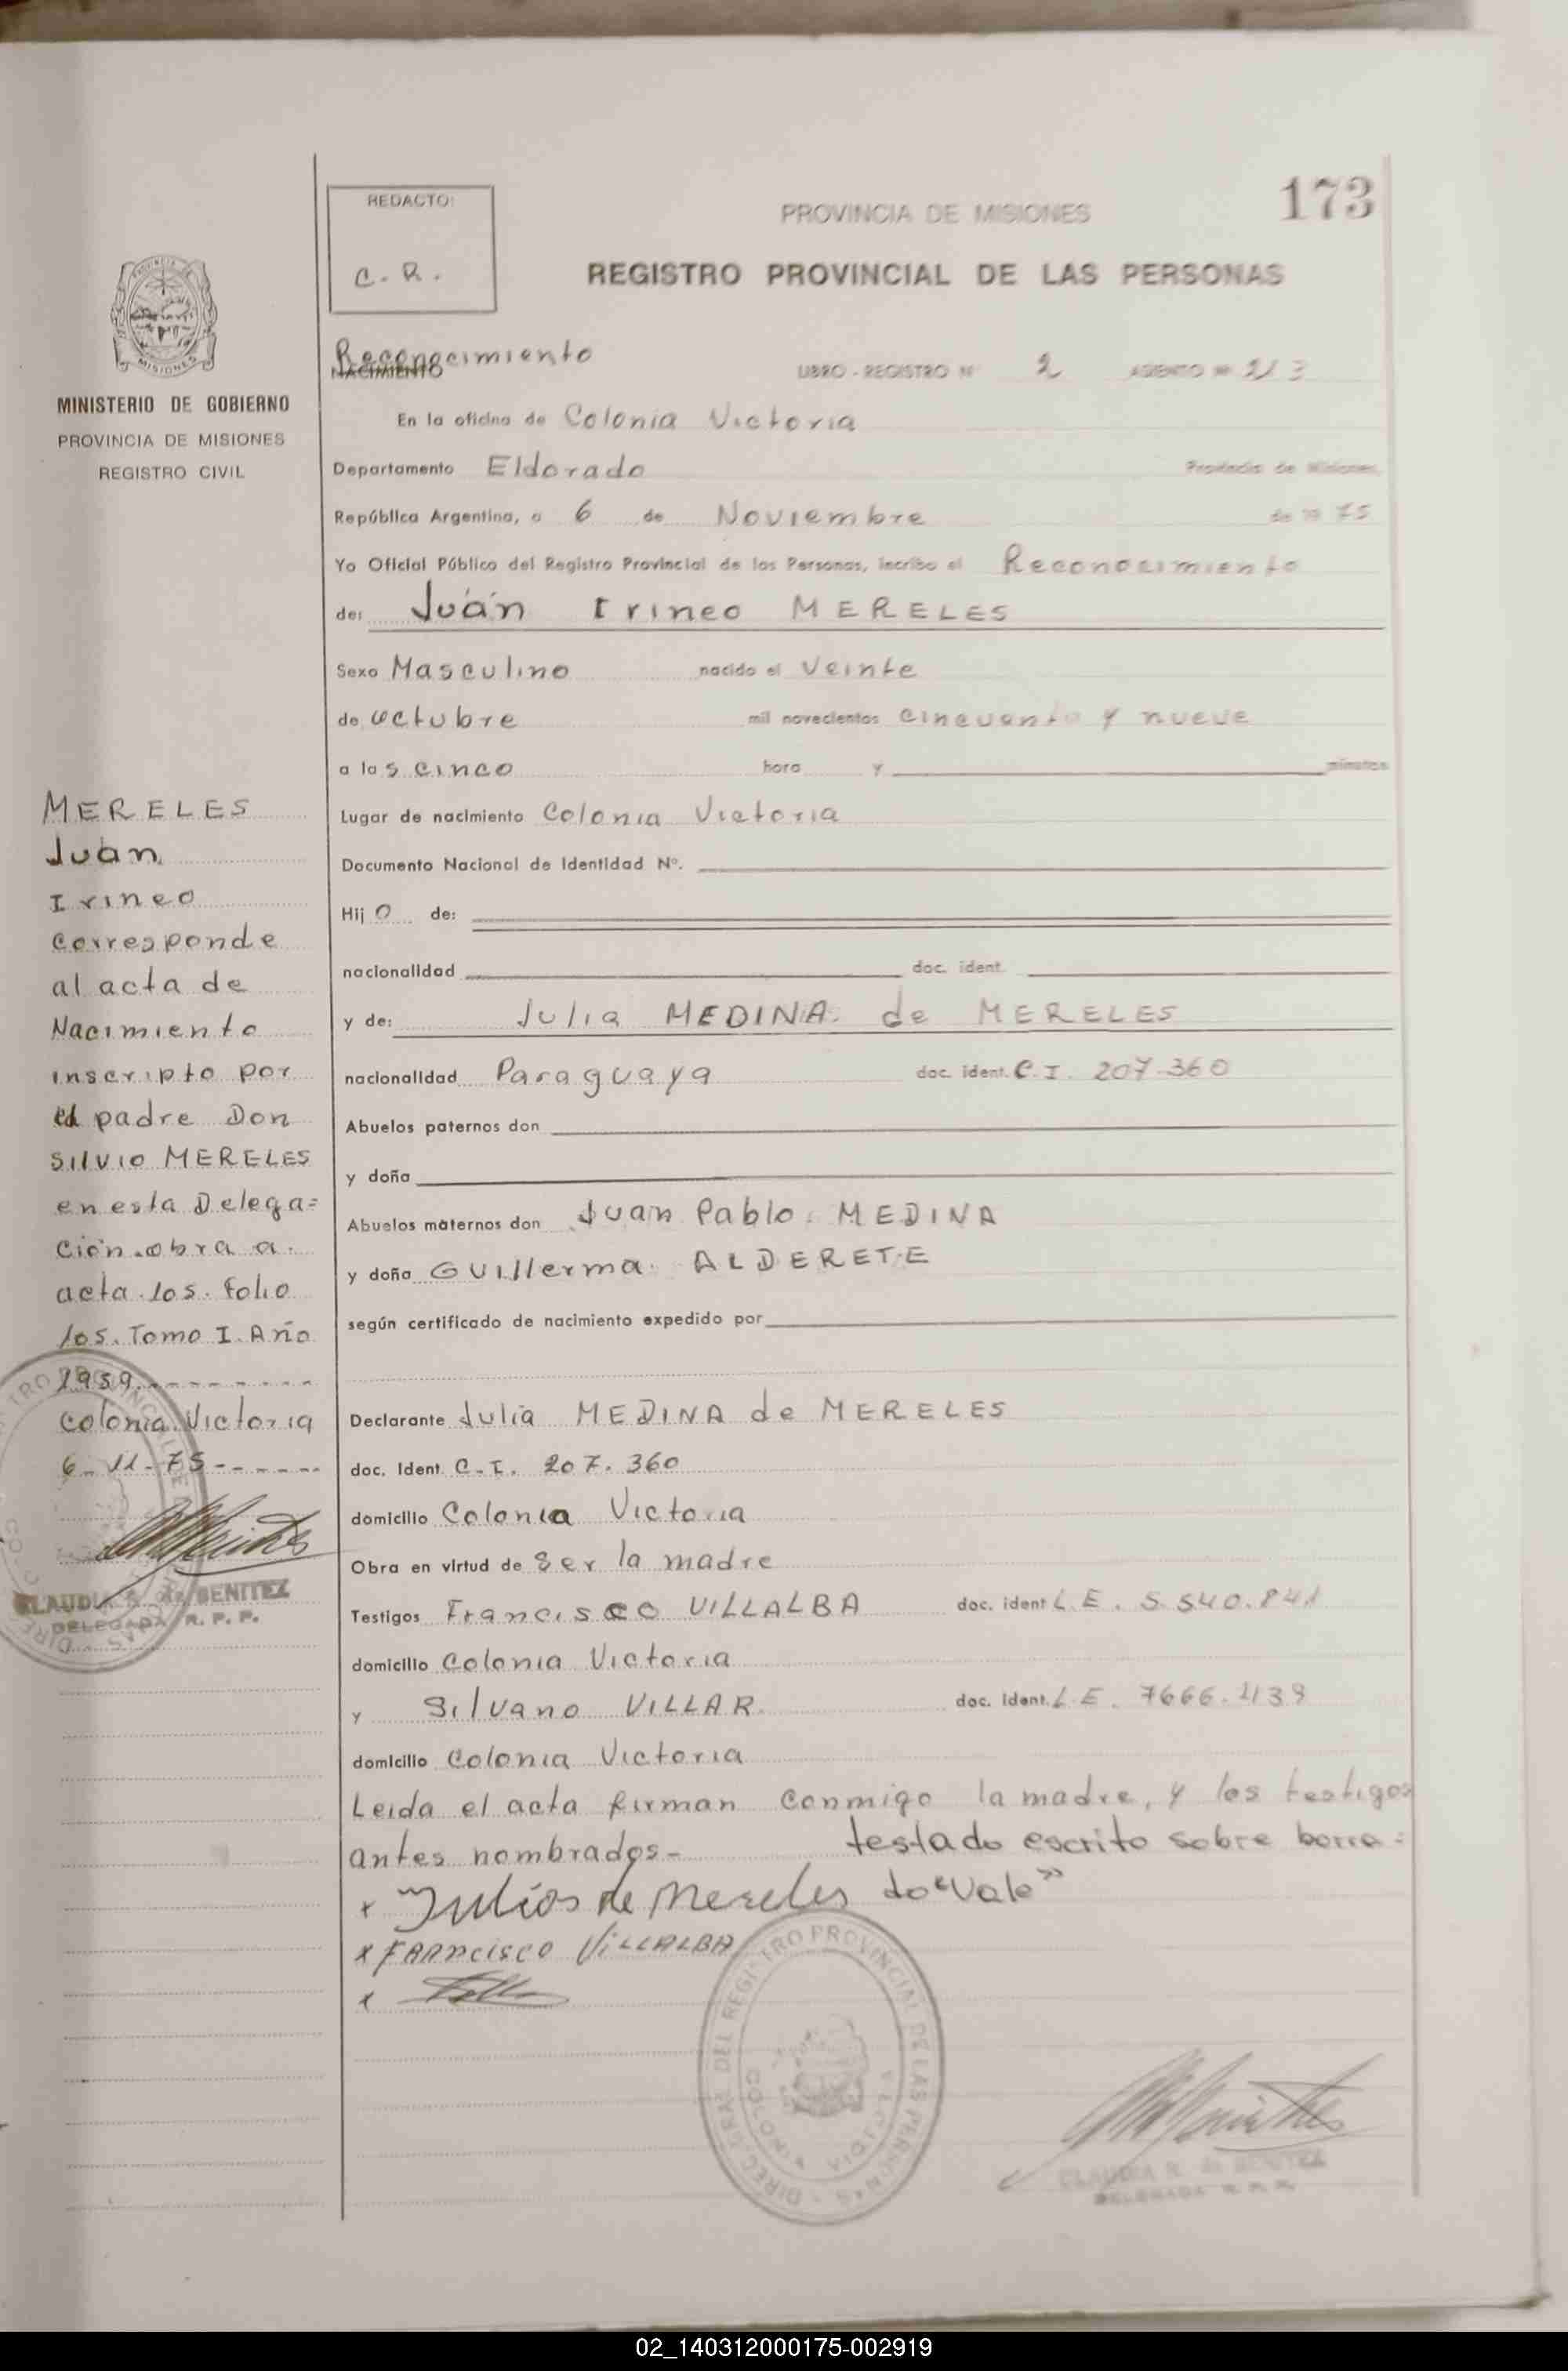 173
REDACTO:
C. R.
PROVINCIA DE MISIONES
REGISTRO PROVINCIAL DE LAS PERSONAS
MINISTERIO DE GOBIERNO
PROVINCIA DE MISIONES
REGISTRO CIVIL
MERELES
Juan
Irineo
corresponde
al acta de
Nacimiento
inscripto por
el padre Don
Silvio MERELES
en esta Delega=
ción.obra a.
acta.105.folio
105.Tomo I.Año
1959.---------
colonia Victoria
6-11-75------
CLAUDIA R. de BENITEZ
DELEGADA R. P. P.
Reconocimiento
NACIMIENTO
LIBRO - REGISTRO Nº 2 ASIENTO Nº 2/3
En la oficina de Colonia Victoria
Departamento Eldorado Provincia de Misiones,
República Argentina, a 6 de Noviembre de 19 75
Yo Oficial Público del Registro Provincial de las Personas, incribo el Reconocimiento
de: Juán Irineo MERELES
Sexo Masculino nacido el Veinte
de octubre mil novecientos cincuenta y nueve
a las cinco hora y minutos
Lugar de nacimiento Colonia Victoria
Documento Nacional de Identidad Nº.
Hijo de:
nacionalidad doc. ident.
y de: Julia MEDINA. de MERELES
nacionalidad Paraguaya doc. ident. C.I. 207.360
Abuelos paternos don
y doña
Abuelos maternos don Juan Pablo. MEDINA
y doña Guillerma. ALDERETE
según certificado de nacimiento expedido por
Declarante Julia MEDINA de MERELES
doc. Ident. C.I. 207.360
domicilio Colonia Victoria
Obra en virtud de Ser la madre
Testigos Francisco VILLALBA doc. ident L.E. 5.540.841
domicilio Colonia Victoria
y Silvano VILLAR. doc. ident. L.E. 7666.
domicilio Colonia Victoria
Leida el acta firman conmigo la madre, y los testigos
antes nombrados.- testado escrito sobre borra=
x Julios de Mereles do"Vale"
x FARNCISCO VILLALBA
x
DIREC. GRAL. DEL REGISTRO PROVINCIAL DE LAS PERSONAS
CLAUDIA R. de BENITEZ
DELEGADA R. P. P.
02_140312000175-002919